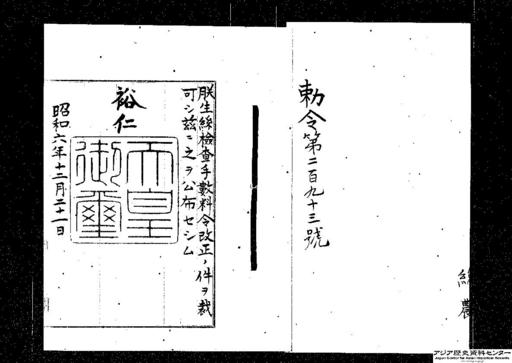 勅令第二百九十三號
農
朕生絲檢査手數料令改正ノ件ヲ裁
可シ茲ニ之ヲ公布セシム
裕仁
天皇
御璽
昭和六年十二月二十一日
アジア歴史資料センター
Japan Center for Asian Historical Records